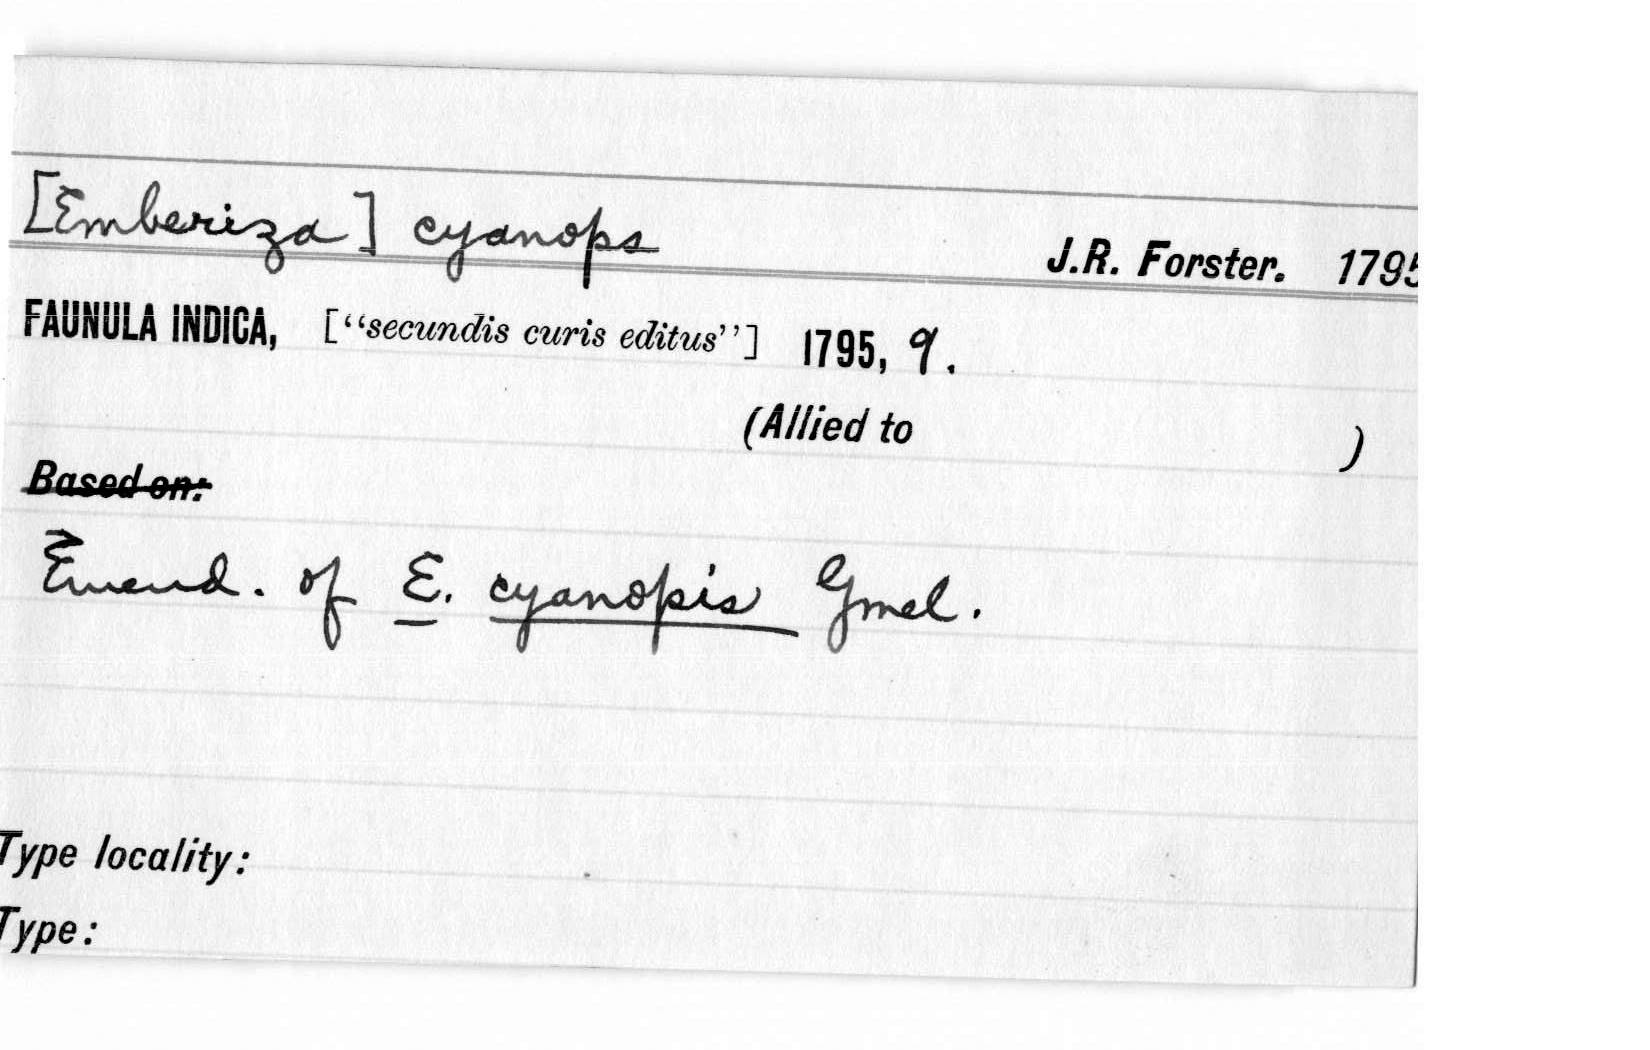 [Emberiza] cyanops
J.R. Forster. 1795
FAUNULA INDICA, ["secundis curis editus"] 1795, 9.
(Allied to )
Based on:
Emend. of E. cyanopis Gmel.
Type locality:
Type: